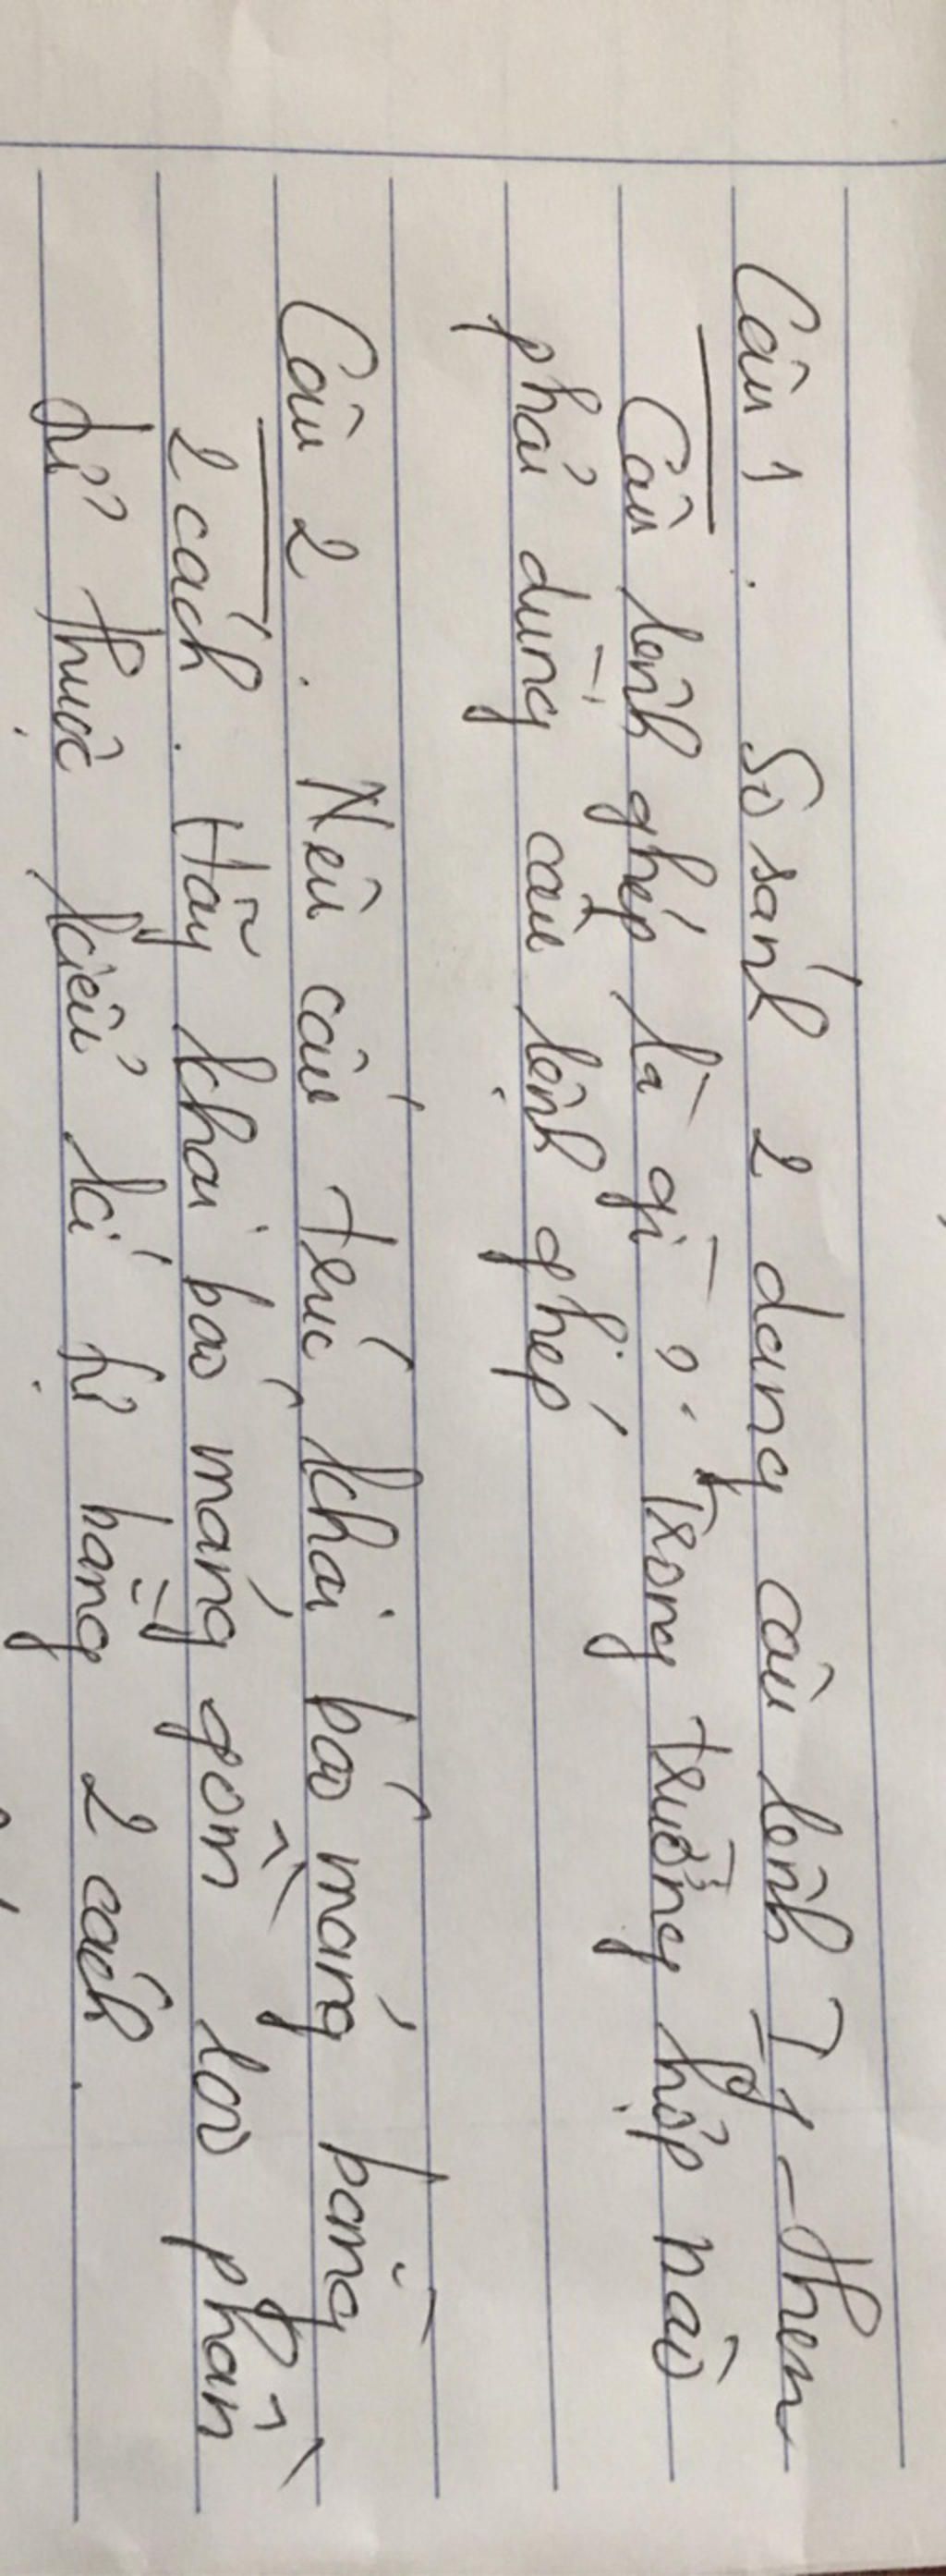 Câu 1. So sánh 2 dạng câu lệnh If-then
Câu lệnh ghép là gì? Trong trường hợp nào
phải dùng câu lệnh ghép
Câu 2. Nêu cấu trúc khai báo mảng bằng
2 cách. Hãy khai báo mảng gồm 100 phần
tử thuộc kiểu kí tự bằng 2 cách.